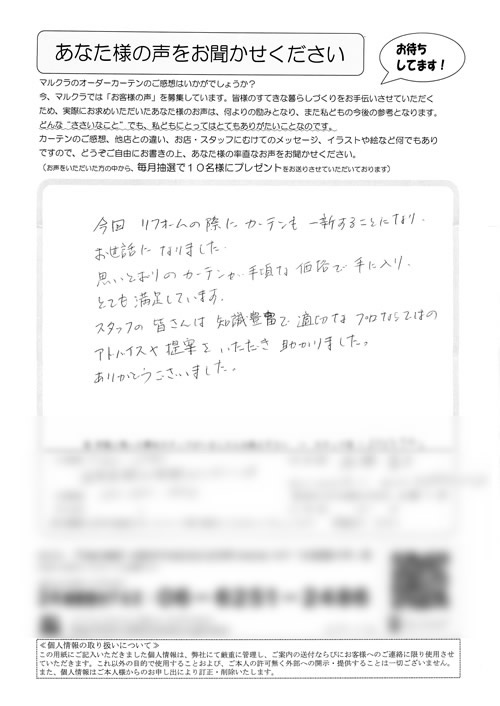 あなた様の声をお聞かせください
お待ち
してます！
マルクラのオーダーカーテンのご感想はいかがでしょうか？
今、マルクラでは「お客様の声」を募集しています。皆様のすてきな暮らしづくりをお手伝いさせていただく
ため、実際にお求めいただいたあなた様のお声は、何よりの励みとなり、また私どもの今後の参考となります。
どんな“ささいなこと”でも、私どもにとってはとてもありがたいことなのです。
カーテンのご感想、他店との違い、お店・スタッフにむけてのメッセージ、イラストや絵など何でもあり
ですので、どうぞご自由にお書きの上、あなた様の率直なお声をお聞かせください。
（お声をいただいた方の中から、毎月抽選で１０名様にプレゼントをお送りさせていただいております）
今回 リフォームの際に カーテンも 一新することになり、
お世話に なりました。
思いどおりの カーテンが 手頃な 価格で 手に入り、
とても 満足しています。
スタッフの 皆さんは 知識豊富で 適切な プロならではの
アドバイスや 提案を いただき 助かりました。
ありがとうございました。
06-6251-2486
≪個人情報の取り扱いについて≫
この用紙にご記入いただきました個人情報は、弊社にて厳重に管理し、ご案内の送付ならびにお客様へのご連絡に限り使用させ
ていただきます。これ以外の目的で使用することおよび、ご本人の許可無く外部への開示・提供することは一切ございません。
また、個人情報はご本人様からのお申し出により訂正・削除いたします。